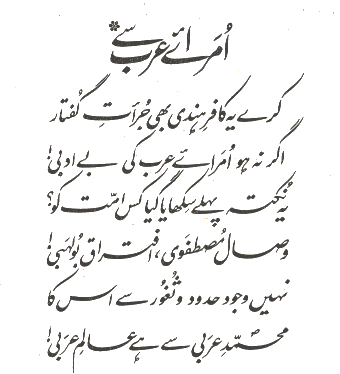 اُمرائے عرب سے*
کرے یہ کافرِ ہندی بھی جُرأتِ گُفتار
اگر نہ ہو اُمَرائے عرب کی بے ادبی!
یہ نُکتہ پہلے سِکھایا گیا کس اُمّت کو؟
وصالِ مُصطفوی، افتراق بُولہبی!
نہیں وجود حدود و ثُغُور سے اس کا
محمّدِؐ عربی سے ہے عالمِ عربی!